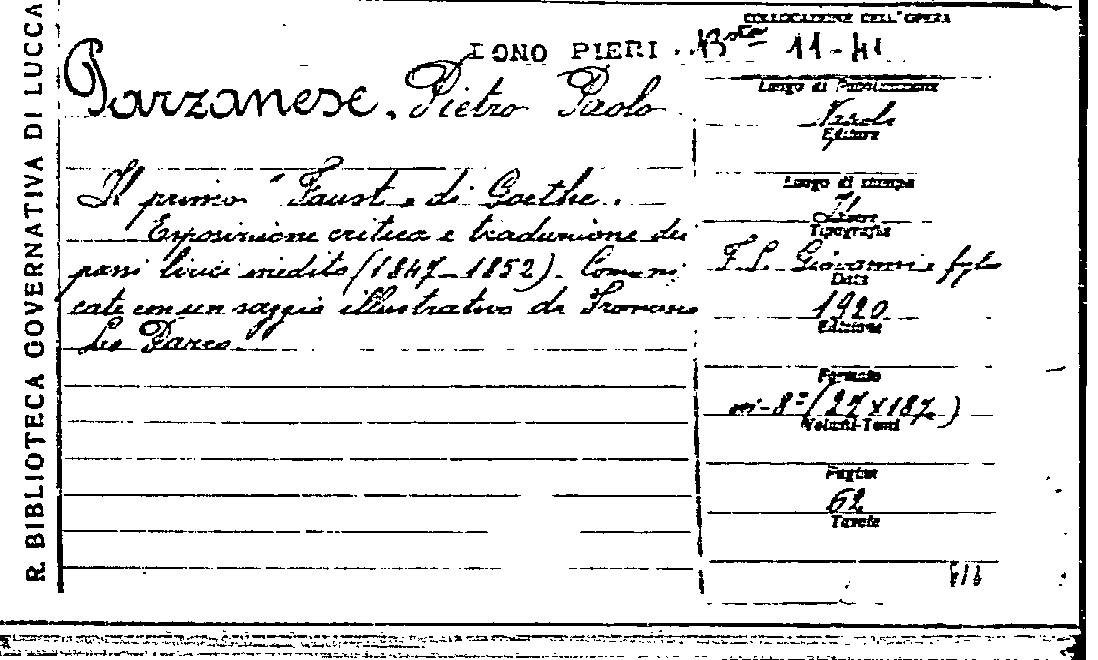 R. BIBLIOTECA GOVERNATIVA DI LUCCA
COLLOCAZIONE DELL'OPERA
IONO PIERI. Bta 11-41
Parzanese, Pietro Paolo
Il primo "Faust" di Goethe.
Esposizione critica e traduzione dei
passi lirici inedito (1847-1852). Comuni
cate con un saggio illustrativo da
Lo Parco.
Luogo di Pubblicazione
Napoli
Editore
Luogo di stampa
Tipografia
F.S. Giovanni e figlio
Data
1920
Edizione
Formato
in-8º (27 x 187)
Volumi-Tomi
Pagine
62
Tavole